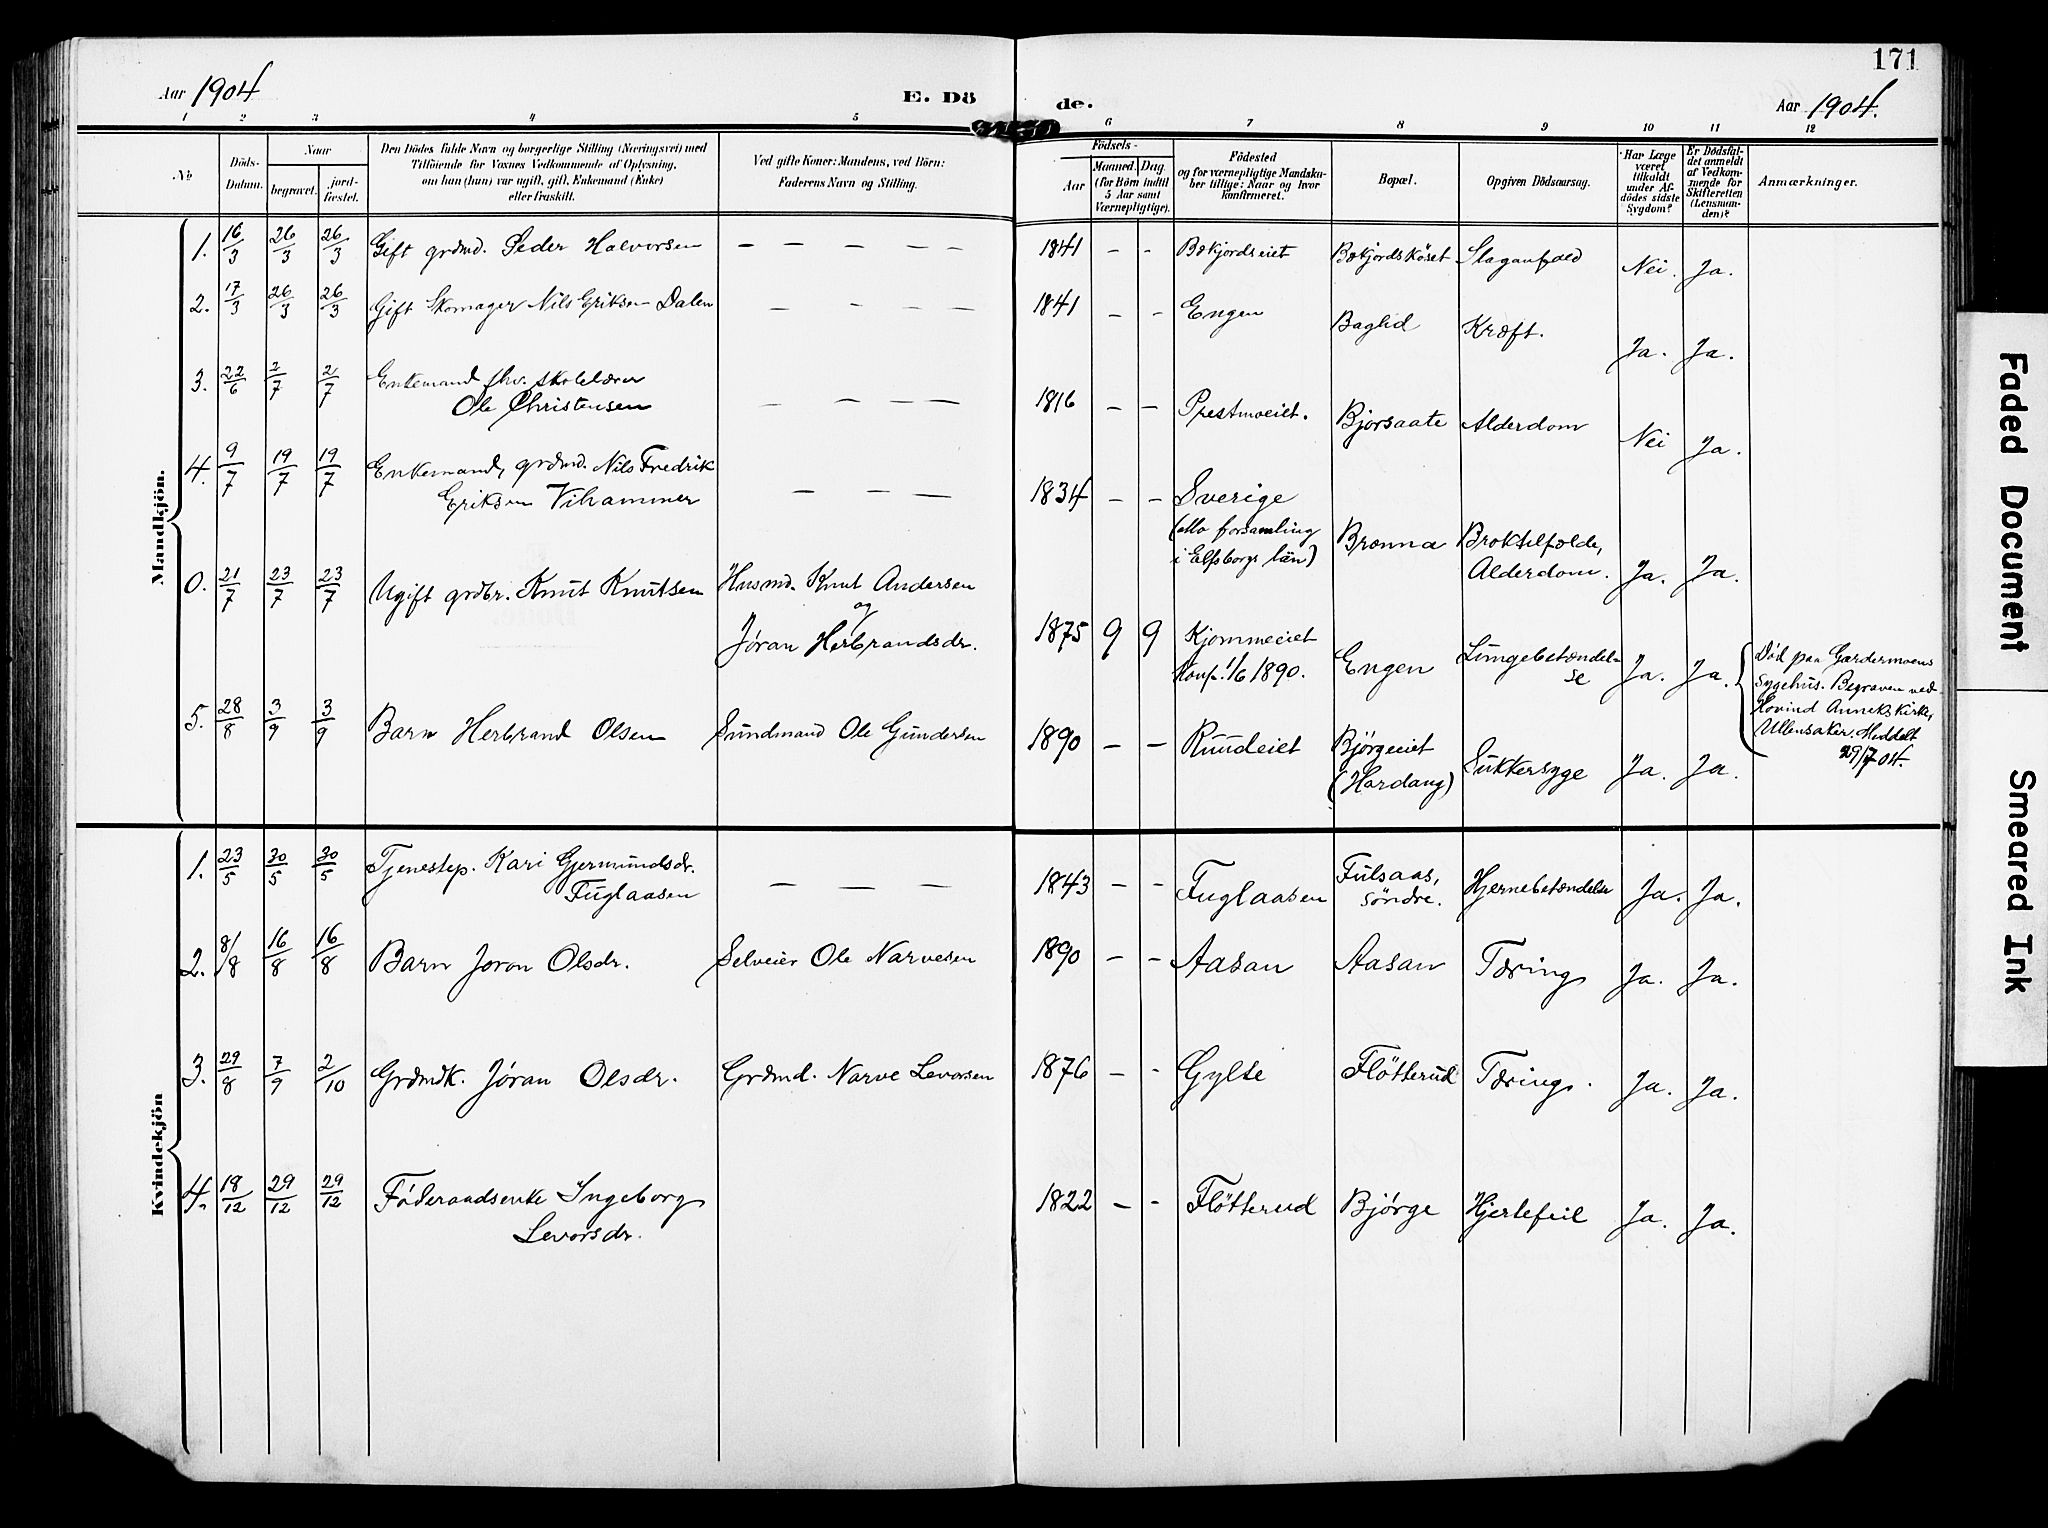 171
Aar 1904
E. Dö
de.
Aar 1904.
1 2 3 4 5
6 7 8 9 10 11 12
No
Döds-Datum.
Naar
begravet.
jord-fæstet.
Den Dödes fulde Navn og borgerlige Stilling (Næringsvei) med
Tilföiende for Voxnes Vedkommende af Oplysning,
om han (hun) var ugift, gift, Enkemand (Enke)
eller fraskilt.
Ved gifte Koner: Mandens, ved Börn:
Faderens Navn og Stilling.
Födsels-
Aar
Maaned. Dag.
(for Börn indtil
5 Aar samt
Værnepligtige).
Födested
og for værnepligtige Mandska-
ber tillige: Naar og hvor
konfirmeret.
Bopæl.
Opgiven Dödsaarsag.
Har Læge
været
tilkaldt
under Af-
dödes sidste
Sygdom?
Er Dödsfal-
det anmeldt
af Vedkom-
mende for
Skifteretten
(Lensman-
den)?
Anmærkninger.
Mandkjön.
1. 16/3 26/3 26/3 Gift grdmd. Peder Halvorsen — — — — — 1841 — - Bækjordseiet Bækjordskåset Slaganfald Nei. Ja.
2. 17/3 26/3 26/3 Gift Skomager Nils Eriksen Dalen — — — — 1841 — - Engen Baglid Kræft. Ja. Ja.
3. 22/6 2/7 2/7 Enkemand fhv. skolelærer
Ole Christensen — — — — 1816 — — Prestmoeiet. Bjørsaate Alderdom Nei Ja.
4. 9/7 19/7 19/7 Enkemand, grdmd. Nils Fredrik
Eriksen Vihammer — — — 1834 — - Sverige
(Atto forsamling
i Elfsborgs län) Brænna Broktilfælde,
Alderdom. Ja. Ja.
0. 21/7 23/7 23/7 Ugift grdbr. Knut Knutsen Husmd. Knut Andersen
og
Jøran Herbrandsdr. 1875 9 9 Kjømmeeiet
Konf. 1/6 1890. Engen Lungebetændel-
se Ja. Ja. Död paa Gardermoens
sygehus. Begraven ved
Hovind Annekskirke,
Ullensaker. Meddelt
29/7 04.
5. 28/8 3/9 3/9 Barn Herbrand Olsen Sundmand Ole Gundersen 1890 — — Ruudeiet Bjørgeeiet
(Hardang) Sukkersyge Ja. Ja.
Kvindekjön
1. 23/5 30/5 30/5 Tjenestep. Kari Gjermundsdr.
Fuglaasen — — — 1843 — - Fuglaasen Fulsaas,
søndre. Hjernebetændelse Ja. Ja.
2. 8/8 16/8 16/8 Barn Jøron Olsdr. Selveier Ole Narvesen 1890 — - Aasan Aasan Tæring Ja. Ja.
3. 29/8 7/9 2/10 Grdmdk. Jøran Olsdr. Grdmd. Narve Levorsen 1876 — - Gylte Fløtterud Tæring. Ja. Ja.
4. 18/12 29/12 29/12 Føderaadsenke Ingeborg
Levorsdr. 1822 — - Fløtterud Bjørge Hjertefeil Ja. Ja.
Faded Document
Smeared Ink